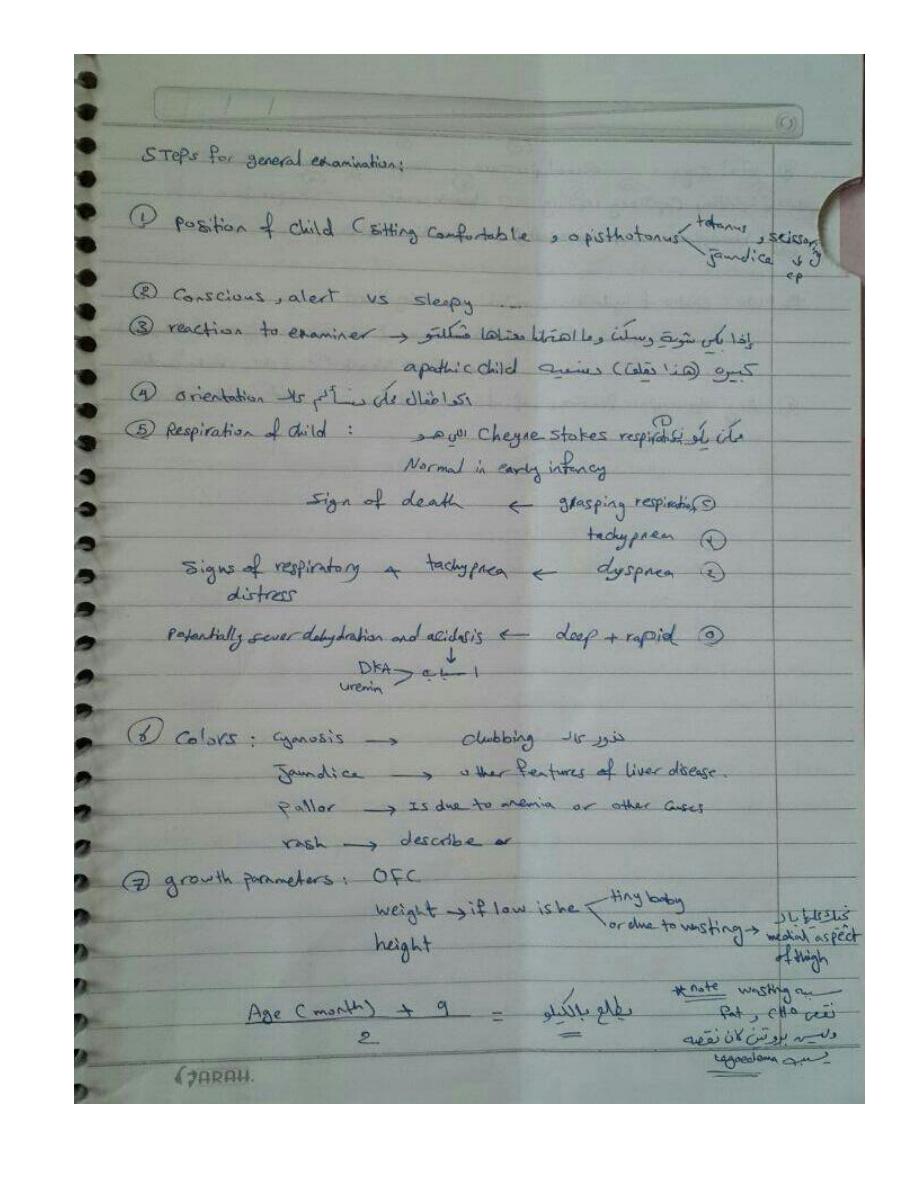 STEPs for general examination:
① Position of child (sitting comfortable, opisthotonus
tetanus
jaundice
, scissoring
↓
CP
② Conscious, alert vs sleepy ...
③ reaction to examiner → إذا بكي شوية وسكت وما اهتملنا معناها مشكلتو
كبيرة (هذا نقلق) منسميه apathic child
④ orientation
⑤ Respiration of child : ① ممكن يكون Cheyne stokes respiration اللي هو
Normal in early infancy
grasping respiration → sign of death
tachypnea
② dyspnea → tachypnea + signs of respiratory
distress
deep + rapid → Potentially sever dehydration and acidosis
↓
أسباب
DKA
uremia
⑥ Colors : Cyanosis → clubbing
Jaundice → other features of liver disease.
Pallor → Is due to anemia or other causes
rash → describe
⑦ growth parameters : OFC
weight → if low is he
tiny baby
or due to wasting →
medial aspect
of thigh
height
Age (month) + 9
2
= يطلع بالكيلو
*note wasting سببه
نقص CHO و fat
وليس بروتين كان نقصه
يسبب edema
SARAH.